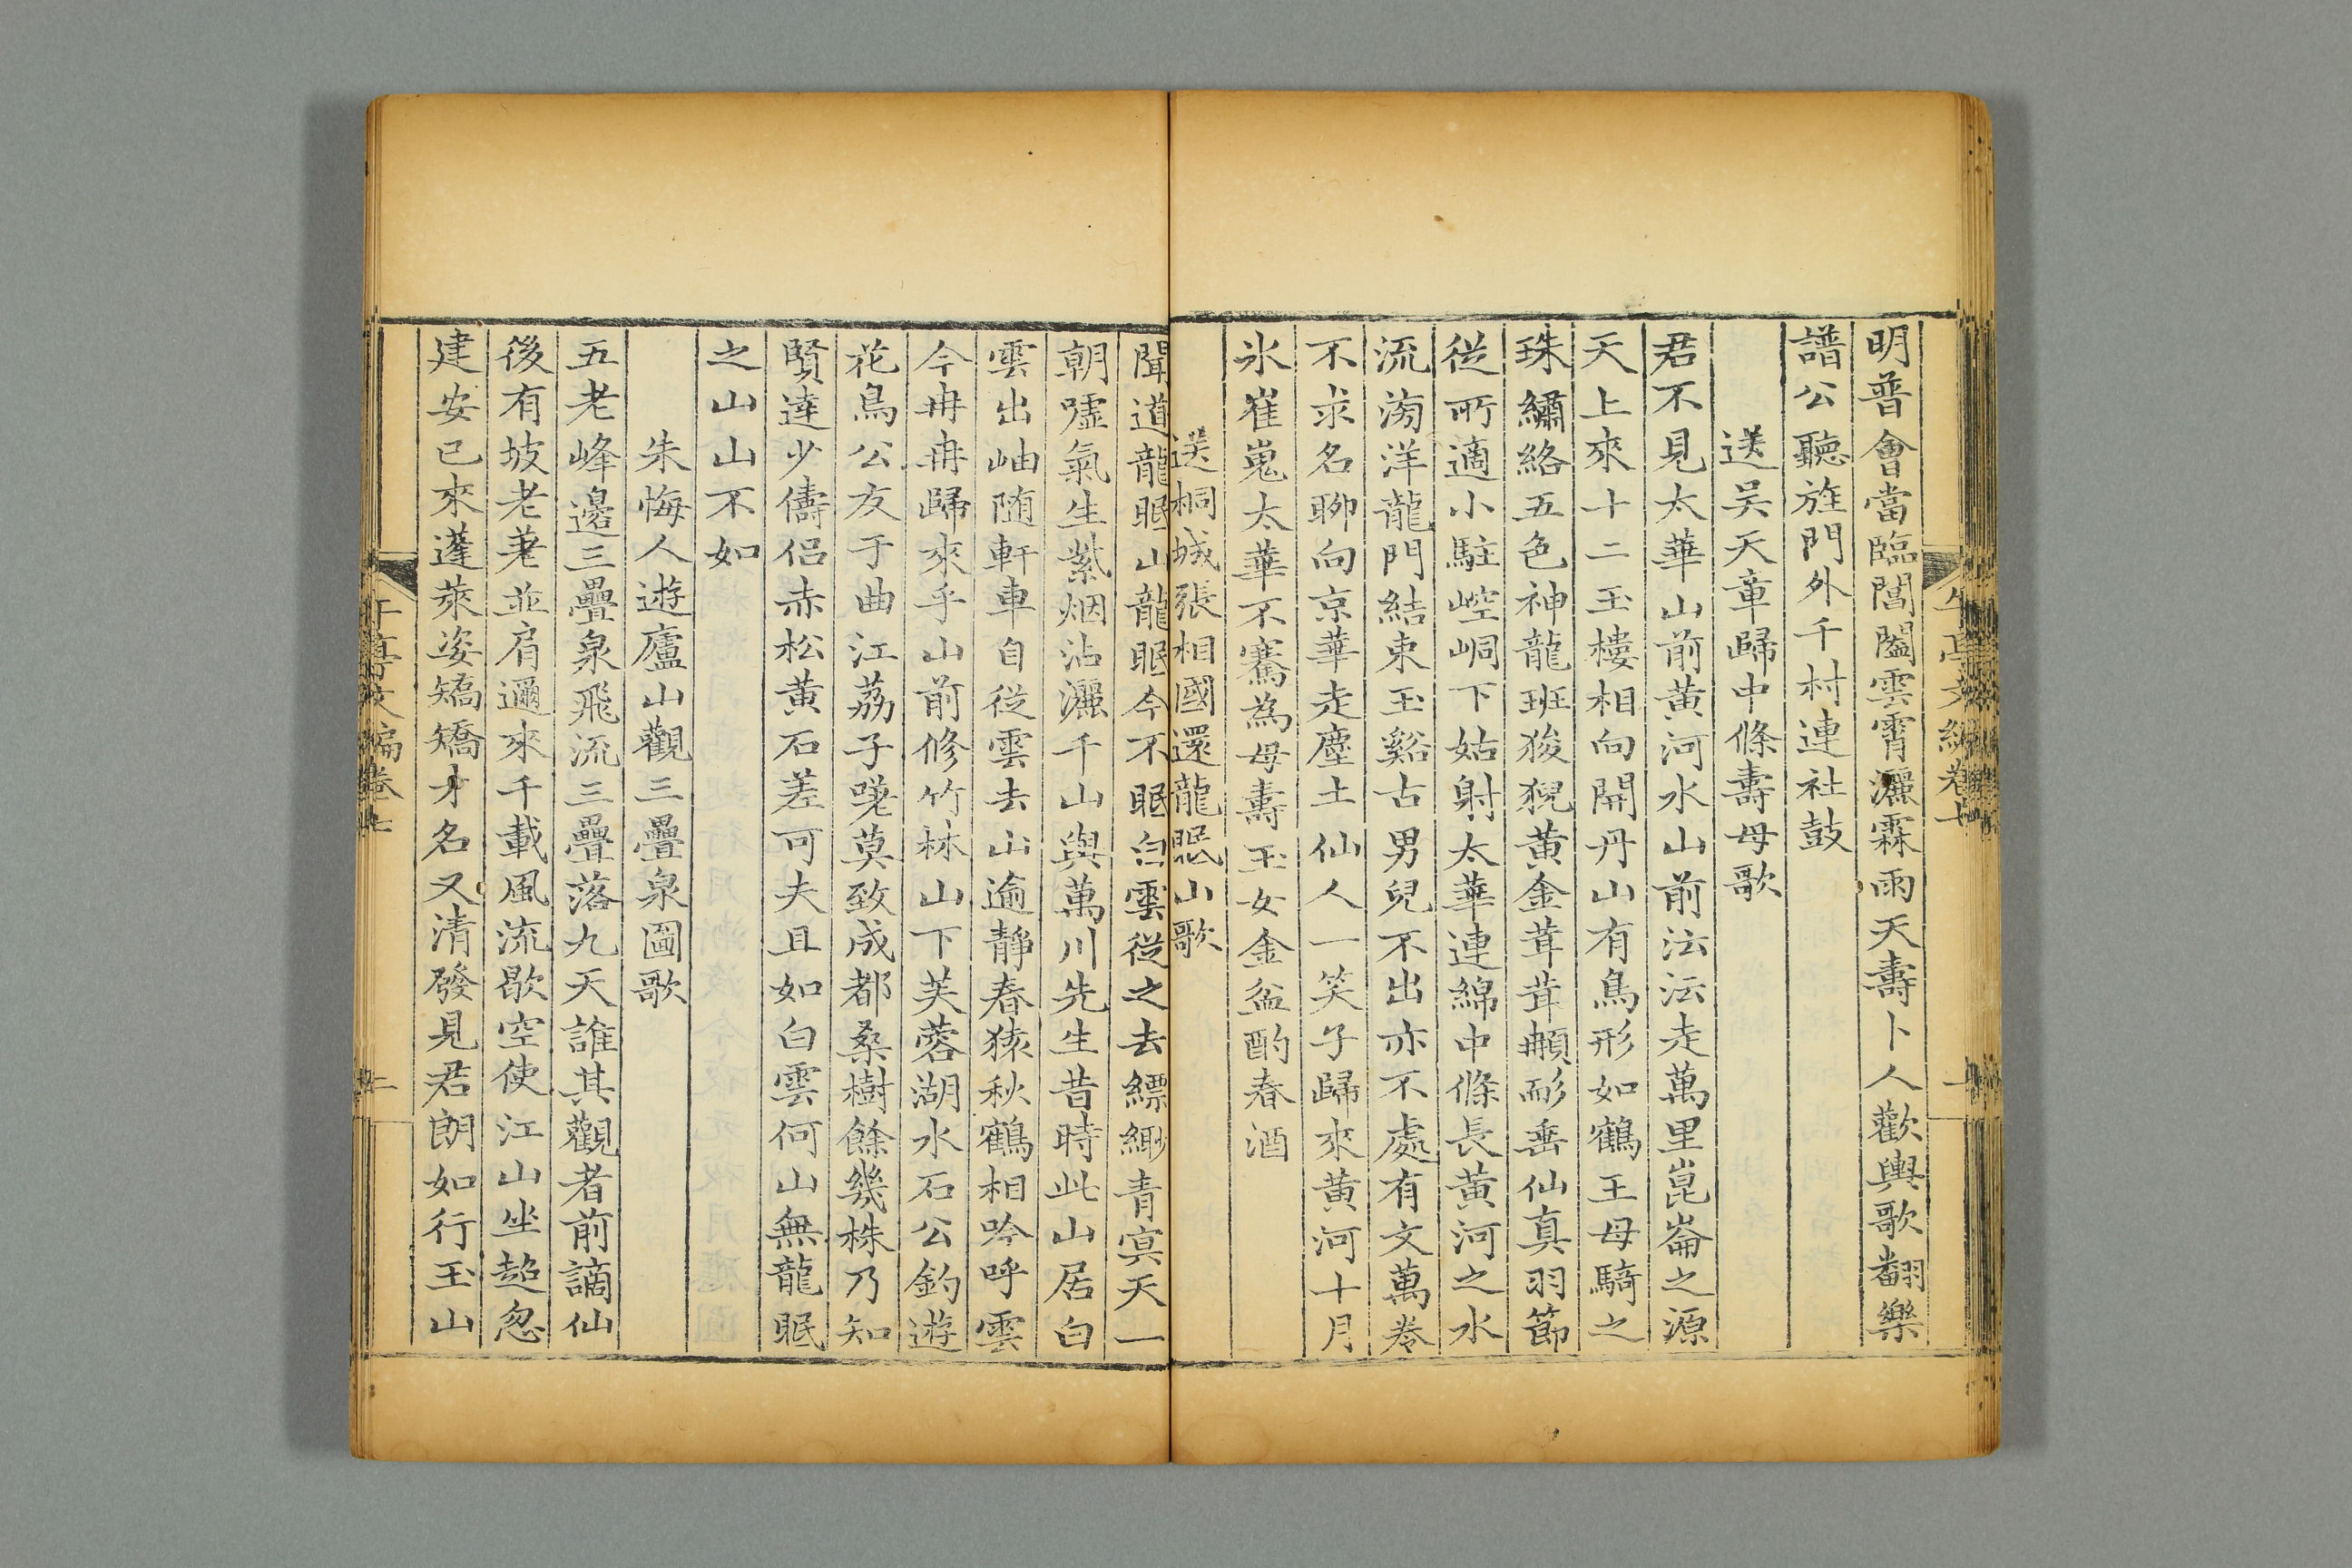 明普會當臨閶闔雲霄灑霖雨天壽卜人歡輿歌翻樂
譜公聽旌門外千村連社鼓
送吴天章歸中條壽母歌
君不見太華山前黄河水山前沄沄走萬里崑崙之源
天上來十二玉樓相向開丹山有鳥形如鶴王母騎之
珠繡絡五色神龍班狻猊黄金茸茸䫇耏垂仙真羽節
從所適小駐崆峒下姑射太華連綿中條長黄河之水
流滂洋龍門結束玉谿古男兒不出亦不處有文萬卷
不求名聊向京華走塵土仙人一笑子歸來黄河十月
氷崔嵬太華不騫為母壽玉女金盆酌春酒
送桐城張相國還龍眠山歌
聞道龍眠山龍眠今不眠白雲從之去縹緲青冥天一
朝噓氣生紫烟沾灑千山與萬川先生昔時此山居白
雲出岫随軒車自從雲去山逾靜春猿秋鶴相吟呼雲
今冉冉歸來乎山前修竹林山下芙蓉湖水石公釣遊
花鳥公友于曲江荔子嘆莫致成都桑樹餘幾株乃知
賢達少儔侣赤松黄石差可夫且如白雲何山無龍眠
之山山不如
朱悔人遊廬山觀三疊泉圖歌
五老峰邊三疊泉飛流三疊落九天誰其觀者前謫仙
後有坡老兼並肩邇來千載風流歇空使江山坐超忽
建安已來蓬萊姿矯矯才名又清發見君朗如行玉山
午亭文編卷七